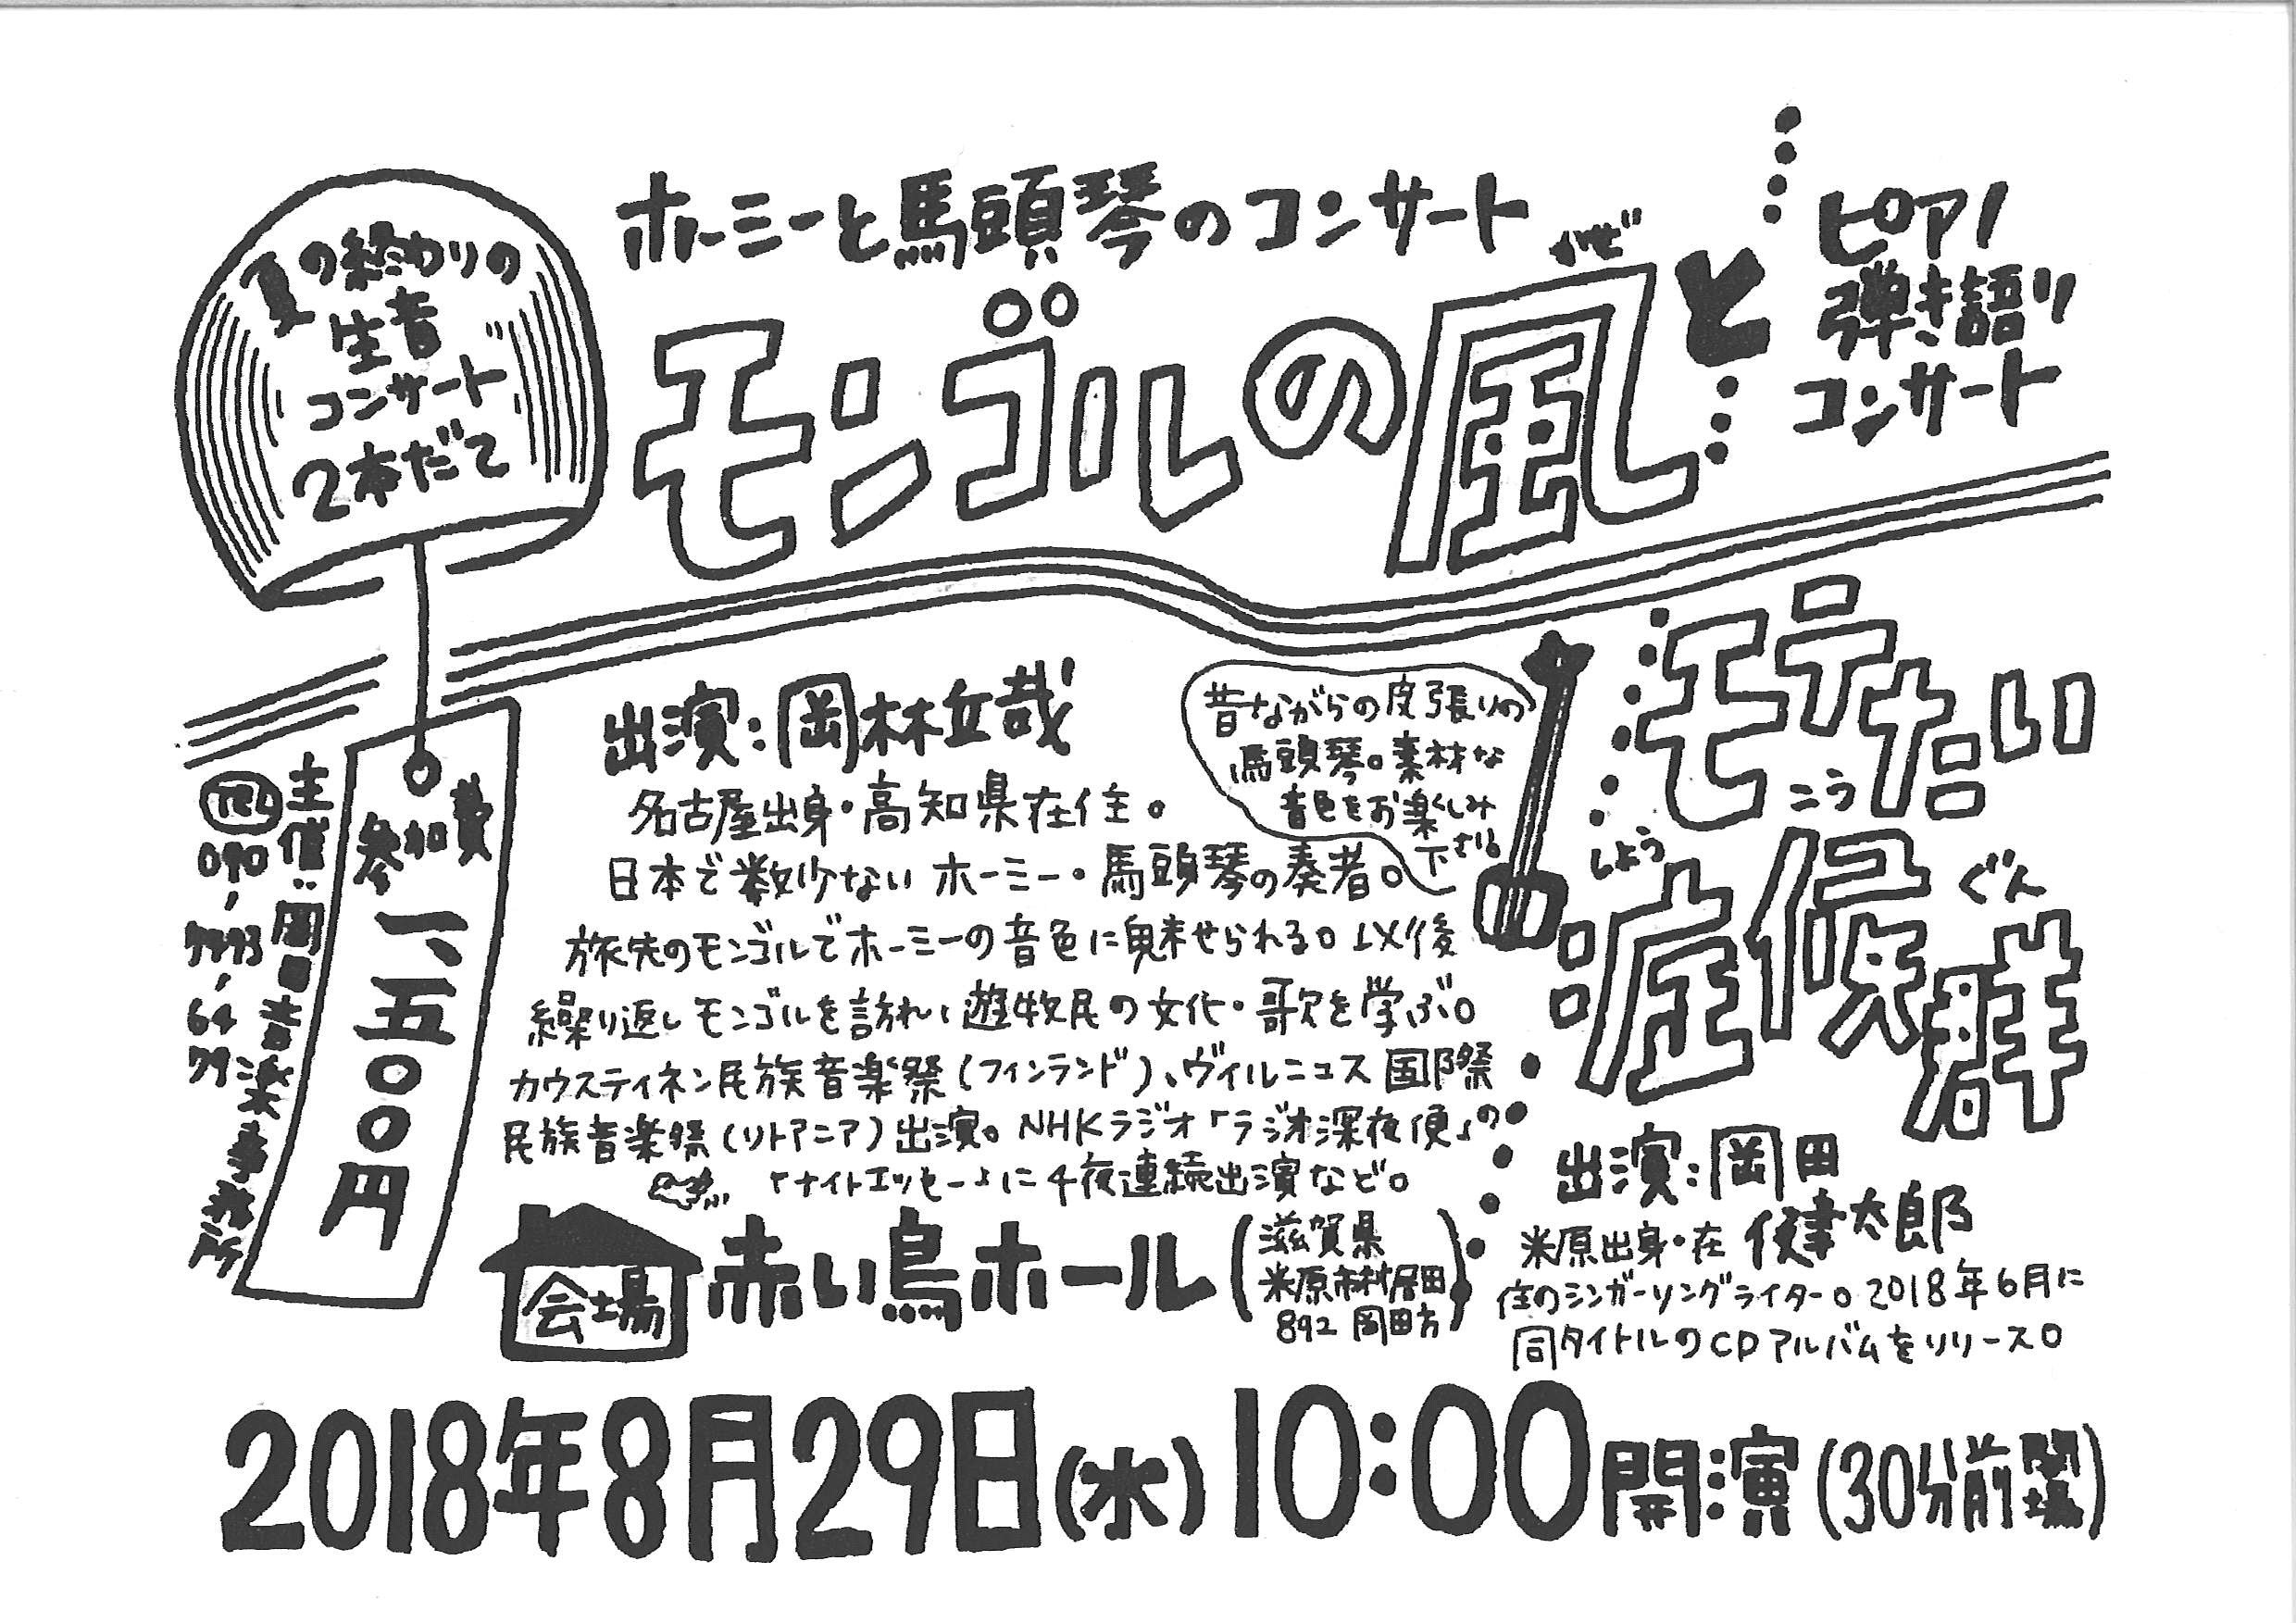 夏の終わりの
生音
コンサート
2本だて
ホーミーと馬頭琴のコンサート
モンゴルの風
かぜ
と
ピアノ
弾き語り
コンサート
モテたい
症候群
しょう
こう
ぐん
出演:岡林立哉
名古屋出身・高知県在住。
日本で数少ないホーミー・馬頭琴の奏者。
旅先のモンゴルでホーミーの音色に魅せられる。以後
繰り返しモンゴルを訪れ、遊牧民の文化・歌を学ぶ。
カウスティネン民族音楽祭(フィンランド)、ヴィルニュス国際
民族音楽祭(リトアニア)出演。NHKラジオ「ラジオ深夜便」の
「ナイトエッセー」に4夜連続出演など。
昔ながらの皮張りの
馬頭琴。素朴な
音色をお楽しみ
下さい。
出演:岡田
健太郎
米原出身・在
住のシンガーソングライター。2018年6月に
同タイトルのCDアルバムをリリース。
参加費
一、五〇〇円
主催:岡田音楽事務所
TEL
090
会場
赤い鳥ホール
(滋賀県
米原市村居田
892 岡田方)
2018年8月29日(水)10:00開演(30分前開場)